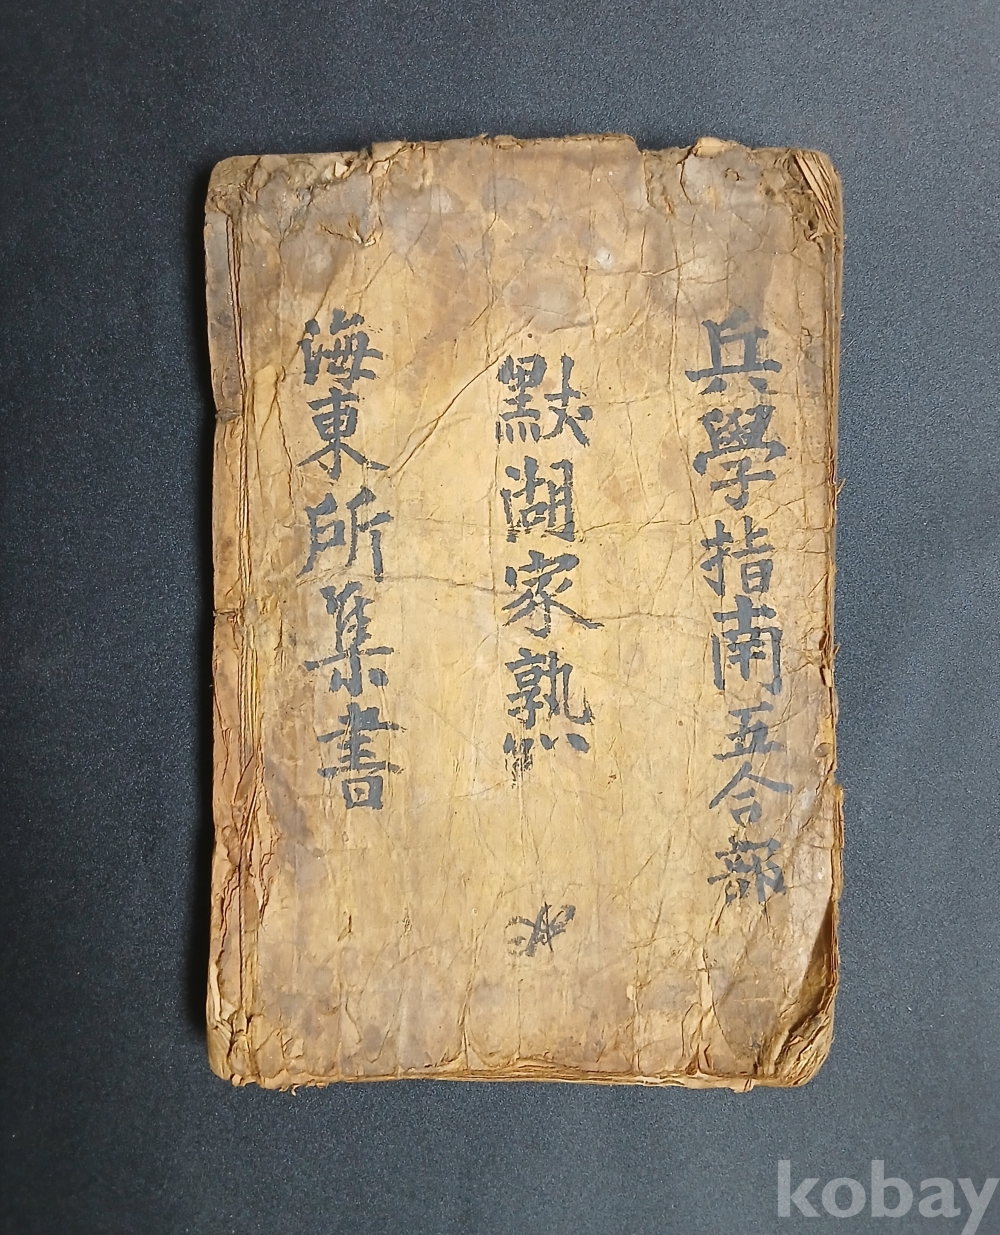 兵學指南五合部
默湖家熟
海東所集書
kobay